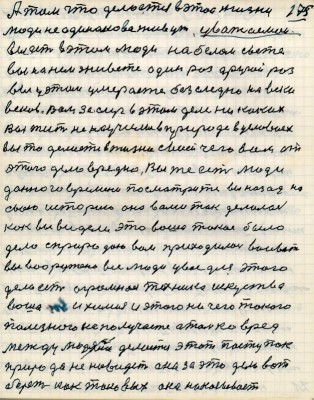 А там что делается в этой жизни 275
люди не одинаково живут, уважаемые
вы есть в этом люди на белом свете
вы на нём живёте один раз другой раз
вы в этом умераете бесследно на веки
веков. Вам заслуг в этом деле ни каких
Вы жить не научены в природе в условиях
вы то делаете в жизни своей чего вам от
этого дело вредно, Вы же есть люди
данного времени посмотрите вы назад на
свою историю она вами так делалась
как вы видели это ваше такое было
дело с природою вам приходилось воевать
вы вооружены вы люди уже для этого
дело есть огромная техника искуства
ваша и химия и этого ни чего такого
полезного не получаете а только вред
между людьми делаете этот поступок
природа не невидит она за это дело вот
берет как таковых она наказывает